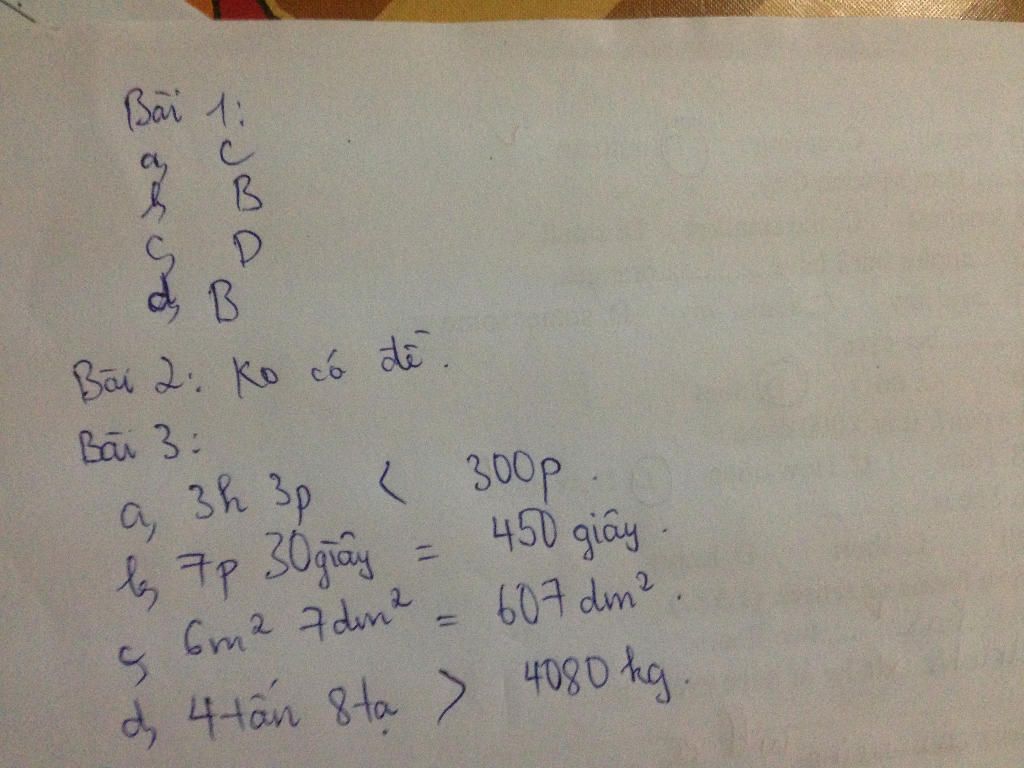 Bài 1:
a, C
b, B
c, D
d, B
Bài 2: Ko có đề.
Bài 3:
a, 3h 3p < 300p.
b, 7p 30giây = 450 giây.
c, 6m² 7dm² = 607 dm².
d, 4tấn 8tạ > 4080 kg.